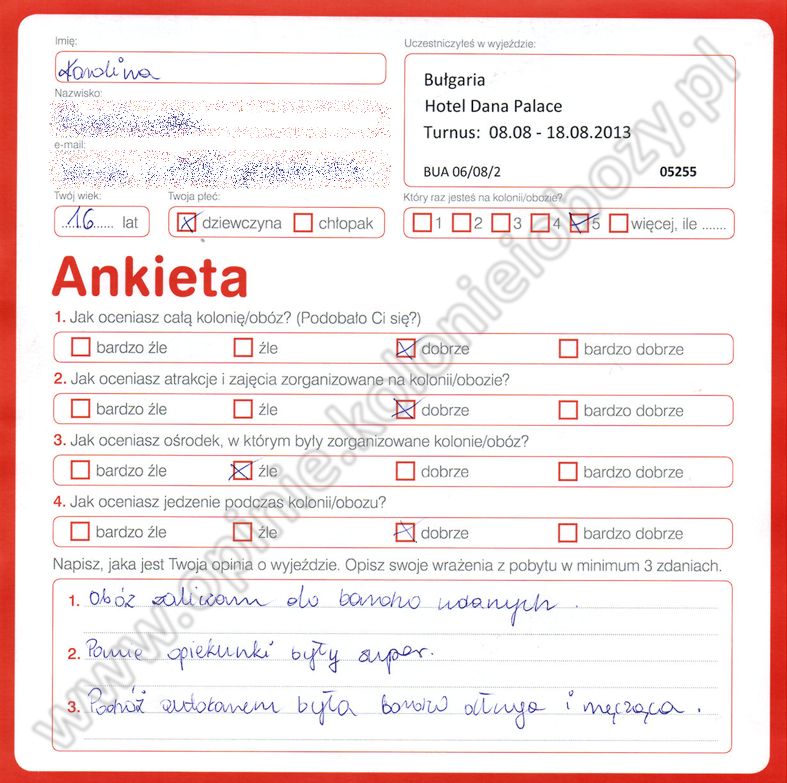 Imię:
Karolina
Nazwisko:
e-mail:
Twój wiek:
16 lat
Twoja płeć:
dziewczyna chłopak
Uczestniczyłeś w wyjeździe:
Bułgaria
Hotel Dana Palace
Turnus: 08.08 - 18.08.2013
BUA 06/08/2 05255
Który raz jesteś na kolonii/obozie?
1 2 3 4 5 więcej, ile .......
Ankieta
1. Jak oceniasz całą kolonię/obóz? (Podobało Ci się?)
bardzo źle źle dobrze bardzo dobrze
2. Jak oceniasz atrakcje i zajęcia zorganizowane na kolonii/obozie?
bardzo źle źle dobrze bardzo dobrze
3. Jak oceniasz ośrodek, w którym były zorganizowane kolonie/obóz?
bardzo źle źle dobrze bardzo dobrze
4. Jak oceniasz jedzenie podczas kolonii/obozu?
bardzo źle źle dobrze bardzo dobrze
Napisz, jaka jest Twoja opinia o wyjeździe. Opisz swoje wrażenia z pobytu w minimum 3 zdaniach.
1. Obóz zaliczam do bardzo udanych.
2. Panie opiekunki były super.
3. Podróż autokarem była bardzo długa i męcząca.
www.opinie.kolonieiobozy.pl